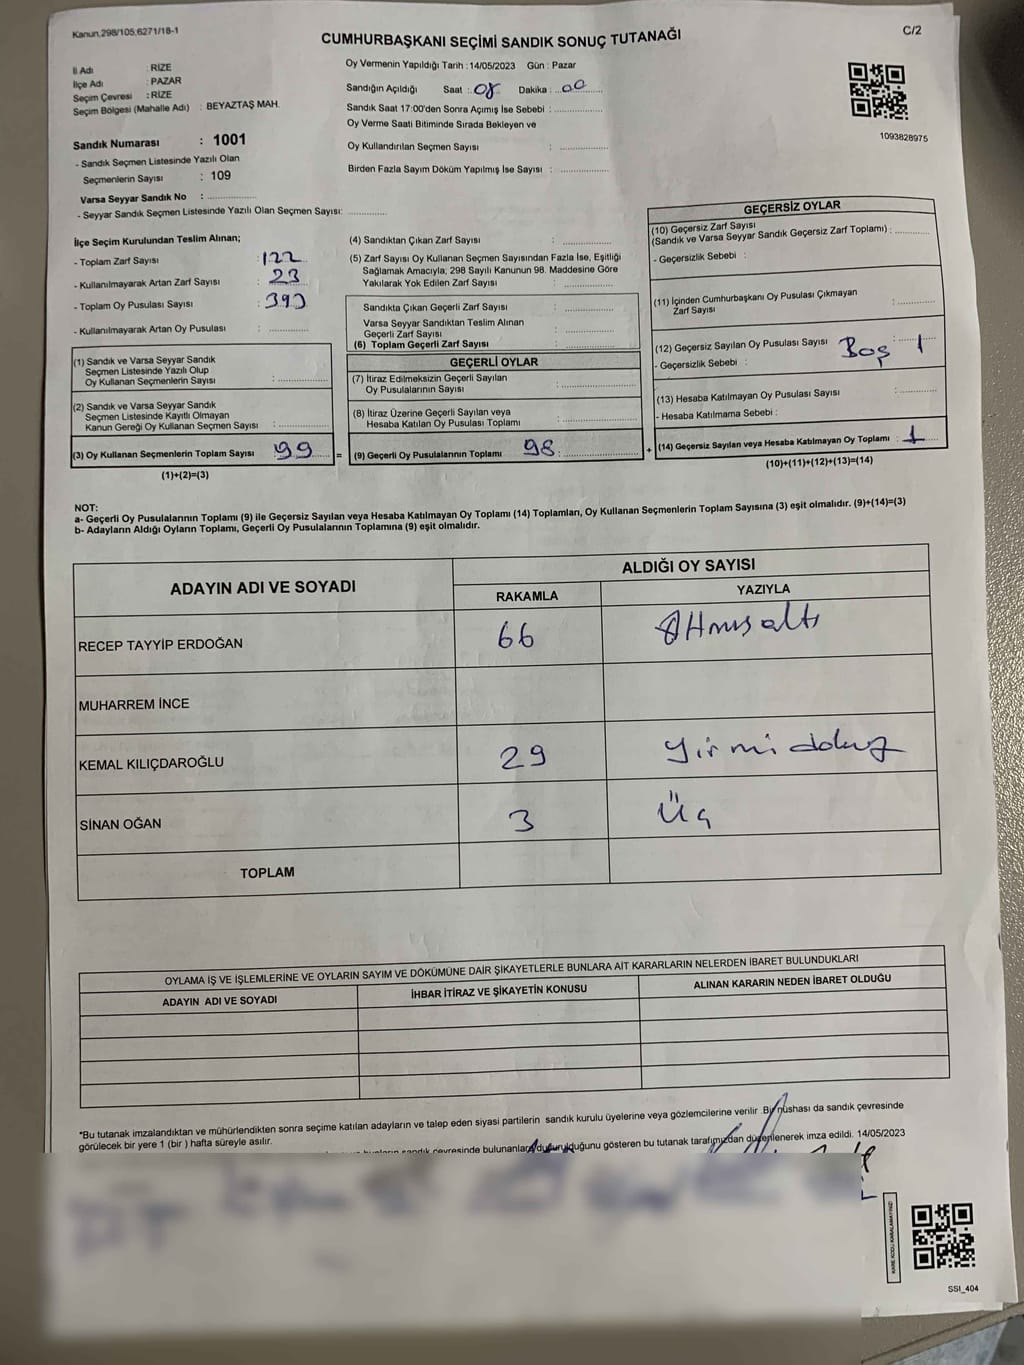 Kanun,298/105;6271/18-1
CUMHURBAŞKANI SEÇİMİ SANDIK SONUÇ TUTANAĞI
C/2
İl Adı : RİZE
İlçe Adı : PAZAR
Seçim Çevresi : RİZE
Seçim Bölgesi (Mahalle Adı) : BEYAZTAŞ MAH.
Sandık Numarası : 1001
- Sandık Seçmen Listesinde Yazılı Olan
Seçmenlerin Sayısı : 109
Varsa Seyyar Sandık No : ..............
- Seyyar Sandık Seçmen Listesinde Yazılı Olan Seçmen Sayısı: ............
Oy Vermenin Yapıldığı Tarih : 14/05/2023 Gün : Pazar
Sandığın Açıldığı Saat : 08 Dakika : 00
Sandık Saat 17:00'den Sonra Açımış İse Sebebi : ..............
Oy Verme Saati Bitiminde Sırada Bekleyen ve
Oy Kullandırılan Seçmen Sayısı : ..............
Birden Fazla Sayım Döküm Yapılmış İse Sayısı : ..............
1093828975
İlçe Seçim Kurulundan Teslim Alınan;
- Toplam Zarf Sayısı : 122
- Kullanılmayarak Artan Zarf Sayısı : 23
- Toplam Oy Pusulası Sayısı :
- Kullanılmayarak Artan Oy Pusulası : ............
(1) Sandık ve Varsa Seyyar Sandık
Seçmen Listesinde Yazılı Olup
Oy Kullanan Seçmenlerin Sayısı : ..............
(2) Sandık ve Varsa Seyyar Sandık
Seçmen Listesinde Kayıtlı Olmayan
Kanun Gereği Oy Kullanan Seçmen Sayısı : ..............
(3) Oy Kullanan Seçmenlerin Toplam Sayısı : 99 =
(1)+(2)=(3)
(4) Sandıktan Çıkan Zarf Sayısı : ..............
(5) Zarf Sayısı Oy Kullanan Seçmen Sayısından Fazla İse, Eşitliği
Sağlamak Amacıyla; 298 Sayılı Kanunun 98. Maddesine Göre
Yakılarak Yok Edilen Zarf Sayısı : ..............
Sandıkta Çıkan Geçerli Zarf Sayısı : ..............
Varsa Seyyar Sandıktan Teslim Alınan
Geçerli Zarf Sayısı : ..............
(6) Toplam Geçerli Zarf Sayısı : ..............
GEÇERLİ OYLAR
(7) İtiraz Edilmeksizin Geçerli Sayılan
Oy Pusulalarının Sayısı : ..............
(8) İtiraz Üzerine Geçerli Sayılan veya
Hesaba Katılan Oy Pusulası Toplamı : ..............
(9) Geçerli Oy Pusulalarının Toplamı 98 : .............. +
GEÇERSİZ OYLAR
(10) Geçersiz Zarf Sayısı
(Sandık ve Varsa Seyyar Sandık Geçersiz Zarf Toplamı) : ..........
- Geçersizlik Sebebi :
(11) İçinden Cumhurbaşkanı Oy Pusulası Çıkmayan
Zarf Sayısı : ............
(12) Geçersiz Sayılan Oy Pusulası Sayısı : Boş 1
- Geçersizlik Sebebi :
(13) Hesaba Katılmayan Oy Pusulası Sayısı : ............
- Hesaba Katılmama Sebebi :
(14) Geçersiz Sayılan veya Hesaba Katılmayan Oy Toplamı : 1
(10)+(11)+(12)+(13)=(14)
NOT:
a- Geçerli Oy Pusulalarının Toplamı (9) ile Geçersiz Sayılan veya Hesaba Katılmayan Oy Toplamı (14) Toplamları, Oy Kullanan Seçmenlerin Toplam Sayısına (3) eşit olmalıdır. (9)+(14)=(3)
b- Adayların Aldığı Oyların Toplamı, Geçerli Oy Pusulalarının Toplamına (9) eşit olmalıdır.
ADAYIN ADI VE SOYADI
ALDIĞI OY SAYISI
RAKAMLA YAZIYLA
RECEP TAYYİP ERDOĞAN 66 Altmış altı
MUHARREM İNCE
KEMAL KILIÇDAROĞLU 29 Yirmi dokuz
SİNAN OĞAN 3 Üç
TOPLAM
OYLAMA İŞ VE İŞLEMLERİNE VE OYLARIN SAYIM VE DÖKÜMÜNE DAİR ŞİKAYETLERLE BUNLARA AİT KARARLARIN NELERDEN İBARET BULUNDUKLARI
ADAYIN ADI VE SOYADI İHBAR İTİRAZ VE ŞİKAYETİN KONUSU ALINAN KARARIN NEDEN İBARET OLDUĞU
*Bu tutanak imzalandıktan ve mühürlendikten sonra seçime katılan adayların ve talep eden siyasi partilerin sandık kurulu üyelerine veya gözlemcilerine verilir. Bir nüshası da sandık çevresinde
görülecek bir yere 1 (bir ) hafta süreyle asılır.
sandık çevresinde bulunanlara duyurulduğunu gösteren bu tutanak tarafımızdan düzenlenerek imza edildi. 14/05/2023
KARE KODU KARALAMAYINIZ!
SSI_404